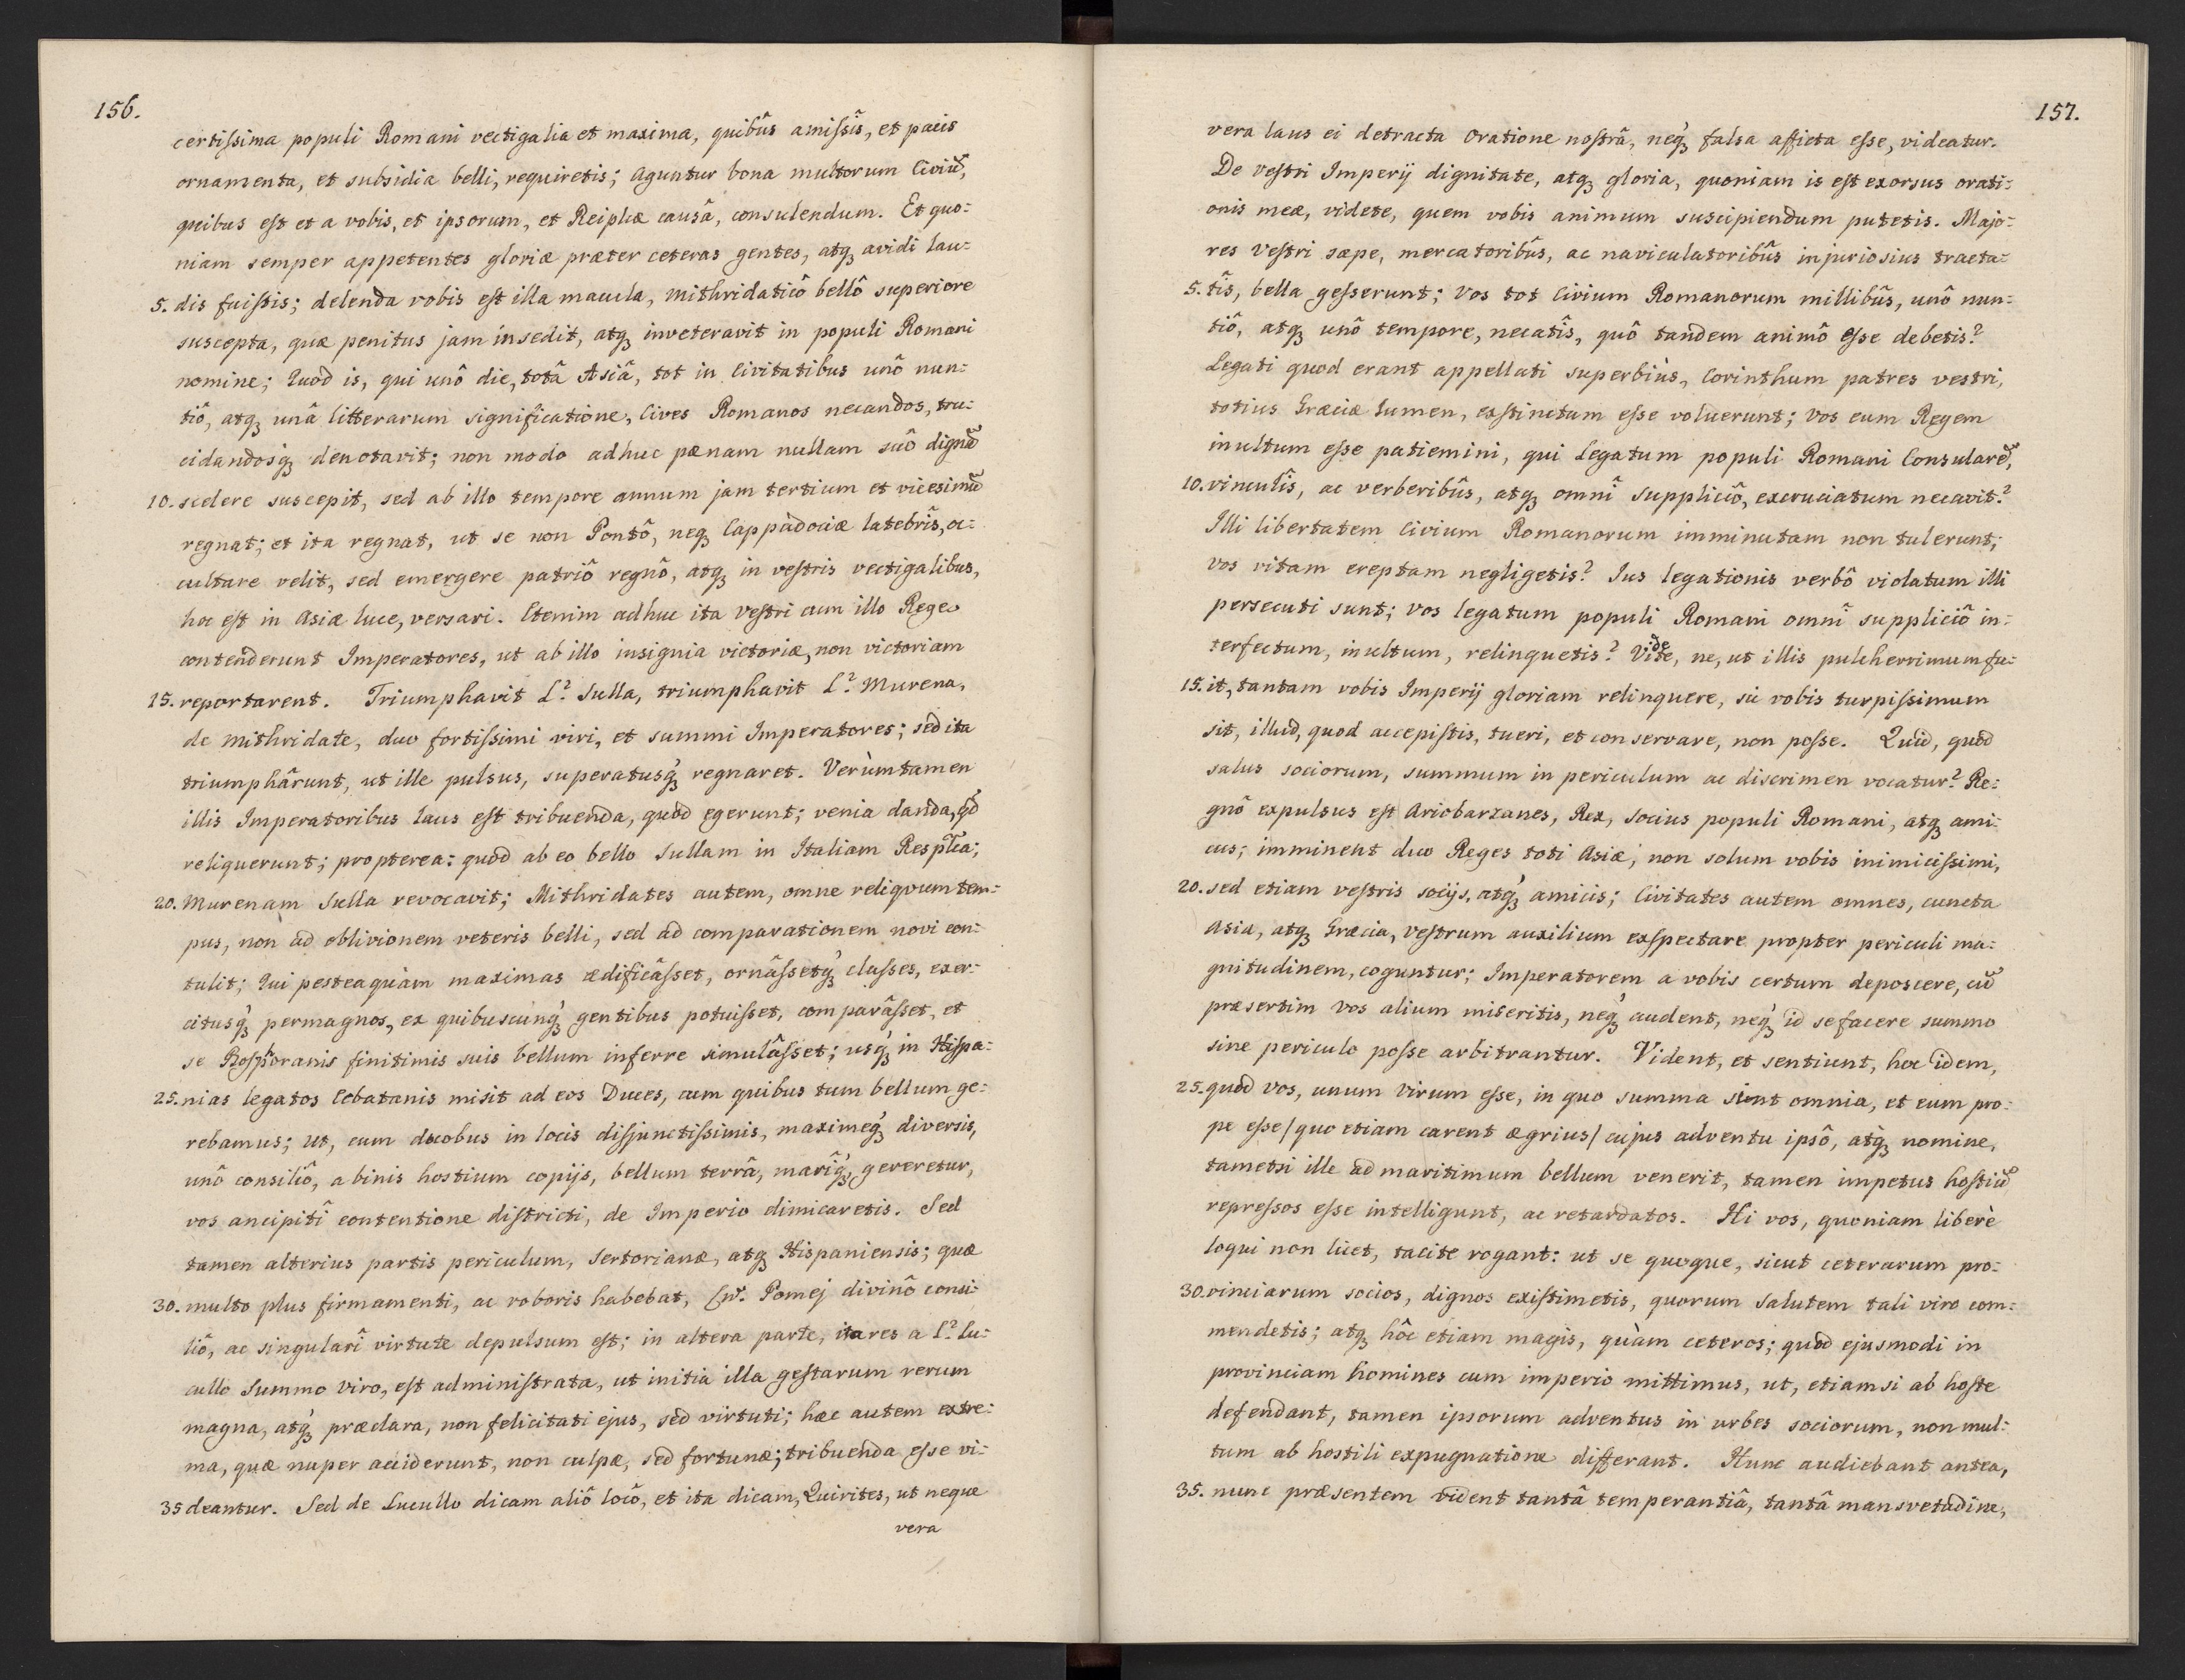 156.
certiſsima populi Romani vectigalia et maxima, quibûs amiſsîs, et pacis
ornamenta, et subsidia belli, requiretis; Aguntur bona multorum Civiũ,
quibus eſt et a vobis, et ipsorum, et Reiplicæ causâ, consulendum. Et quo:
niam semper appetentes gloriæ præter ceteras gentes, atq₃ avidi lau:
5. dis fuiſtis; delenda vobis eſt illa macula, Mithridaticô bellô superiore
suscepta, quæ penitus jam insedit, atq₃ inveteravit in populi Romani
nomine; Quod is, qui unô die, totâ Asiâ, tot in Civitatibus unô nun:
tiô, atq₃ unâ litterarum significatione, Cives Romanos necandos, tru:
cidandosq₃ denotavit; non modo adhuc pænam nullam suô dignã
10. scelere suscepit, sed ab illo tempore annum jam tertium et vicesimũ
regnat; et ita regnat, ut se non Pontô, neq₃ Cappadociæ latebrîs, oc:
cultare velit, sed emergere patriô regnô, atq₃ in veſtris vectigalibus,
hoc eſt in Asiæ luce, versari. Etenim adhuc ita veſtri cum illo Rege
contenderunt Imperatores, ut ab illo insignia victoriæ, non victoriam
15. reportarent. Triumphavit L? Sulla, triumphavit L? Murena,
de Mithridate, duo fortiſsimi viri, et summi Imperatores; sed ita
triumphârunt, ut ille pulsus, superatusq́₃ regnaret. Verùmtamen
illis Imperatoribus laus eſt tribuenda, quòd egerunt; venia danda, qd̃
reliquerunt; propterea: quòd ab eo bello Sullam in Italiam Resplica;
20. Murenam Sulla revocavit; Mithridates autem, omne reliqvum tem:
pus, non ad oblivionem veteris belli, sed ad comparationem novi con:
tulit; Qui posteaquàm maximas ædificâſset, ornâſsetq́₃ claſses, exer:
citusq́₃ permagnos, ex quibuscunq́₃ gentibus potuiſset, comparâſset, et
se Bosphoranis finitimis suis bellum inferre simulâſset; usq́₃ in Hiſpa:
25. nias legatos Ecbatanis misit ad eos Duces, cum quibus tum bellum ge:
rebamus; ut, cum duobus in locis disjunctiſsimis, maximeq́₃ diversis,
unô consiliô, a binis hostium copijs, bellum terrâ, marîq́₃ gereretur,
vos ancipitî contentione diſtricti, de Imperio dimicaretis. Sed
tamen alterius partis periculum, Sertorianæ, atq₃ Hispaniensis; quæ
30. multo plus firmamenti, ac roboris habebat, Cn̄. Pomej divinô consi:
liô, ac singularî virtute depulsum eſt; in altera parte, ita res a L? Lu:
cullo Summo viro, eſt adminiſtrata, ut initia illa geſtarum rerum
magna, atq́₃ præclara, non felicitati ejus, sed virtuti; hæc autem extre:
ma, quæ nuper acciderunt, non culpæ, sed fortunæ; tribuenda eſse vi:
35 deantur. Sed de Lucullo dicam aliô locô, et ita dicam, Quirites, ut neque
vera
157.
vera laus ei detracta Oratione noſtrâ, neq́₃ falsa afficta eſse, videatur.
De veſtri Imperij dignitate, atq₃ gloria, quoniam is eſt exorsus orati:
onis meæ, videte, quem vobis animum suscipiendum putetis. Majo:
res Veſtri sæpe, mercatoribûs, ac naviculatoribûs injuriosius tracta:
5. tîs, bella geſserunt; Vos tot Civium Romanorum millibûs, unô nun:
tiô, atq₃ unô tempore, necatîs, quô tandem animô eſse debetis?
Legati quod erant appellati superbiùs, Corinthum patres vestri,
totius Græciæ Lumen, exſtinctum eſse voluerunt; Vos eum Regem
inultum eſse patiemini, qui Legatum populi Romani Consularẽ,
10. vinculîs, ac verberibûs, atq₃ omnî Suppliciô, excruciatum necavit?
Illi libertatem Civium Romanorum imminutam non tulerunt;
Vos vitam ereptam negligetis? Jus legationis verbô violatum illi
persecuti sunt; Vos legatum populi Romani omnî suppliciô in:
terfectum, inultum, relinquetis? Videte, ne, ut illis pulcherrimum fu:
15. it, tantam vobis Imperij gloriam relinquere, sic vobis turpiſsimum
sit, illud, quod accepiſtis, tueri, et conservare, non poſse. Quid, quòd
salus sociorum, summum in periculum ac discrimen vocatur? Re:
gnô expulsus eſt Ariobarzanes, Rex, Socius populi Romani, atq₃ ami:
cus; imminent duo Reges toti Asiæ, non solum vobis inimiciſsimi,
20. sed etiam veſtris socijs, atq́₃ amicis; Civitates autem omnes, cuncta
Asia, atq₃ Græcia, veſtrum auxilium exſpectare propter periculi ma:
gnitudinem, coguntur; Imperatorem a vobis certum deposcere, cũ
præsertim Vos alium miseritis, neq́₃ audent, neq́₃ id se facere summo
sine periculo poſse arbitrantur. Vident, et sentiunt, hoc idem,
25. quòd vos, unum Virum eſse, in quo summa sint omnia, et eum pro:
pe eſse / quo etiam carent ægrius / cujus adventu ipsô, atq́₃ nomine,
tametsi ille ad maritimum bellum venerit, tamen impetus hoſtiũ
repreſsos eſse intelligunt, ac retardatos. Hi vos, quoniam liberè
loqui non licet, tacite rogant: ut se quoque, sicut ceterarum pro:
30. vinciarum socios, dignos exiſtimetis, quorum Salutem tali viro com:
mendetis; atq₃ hôc etiam magis, quàm ceteros; quòd ejusmodi in
provinciam homines cum imperio mittimus, ut, etiam si ab hoſte
defendant, tamen ipsorum adventus in urbes sociorum, non mul:
tum ab hostili expugnatione differant. Hunc audiebant antea,
35. nunc præsentem vident tantâ temperantiâ, tantâ mansvetudine,